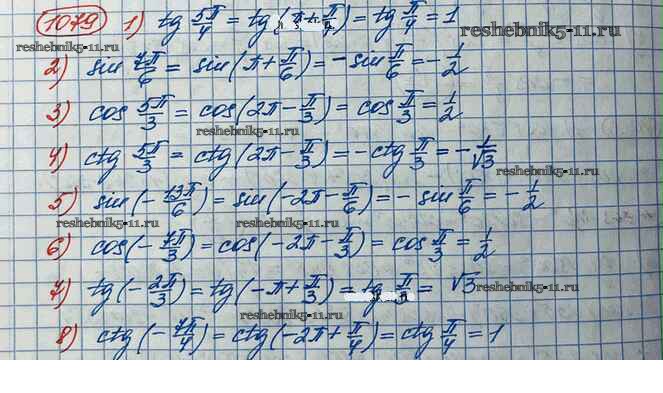 1079 1) tg 5π/4 = tg(π+π/4) = tg π/4 = 1
reshebnik5-11.ru reshebnik5-11.ru
2) sin 7π/6 = sin(π+π/6) = -sin π/6 = -1/2
3) cos 5π/3 = cos(2π-π/3) = cos π/3 = 1/2
reshebnik5-11.ru
4) ctg 5π/3 = ctg(2π-π/3) = -ctg π/3 = -1/√3
reshebnik5-11.ru
5) sin(-13π/6) = sin(-2π-π/6) = -sin π/6 = -1/2
reshebnik5-11.ru reshebnik5-11.ru
6) cos(-7π/3) = cos(-2π-π/3) = cos π/3 = 1/2
7) tg(-2π/3) = tg(-π+π/3) = tg π/3 = √3
reshebnik5-11.ru
reshebnik5-11.ru
8) ctg(-7π/4) = ctg(-2π+π/4) = ctg π/4 = 1